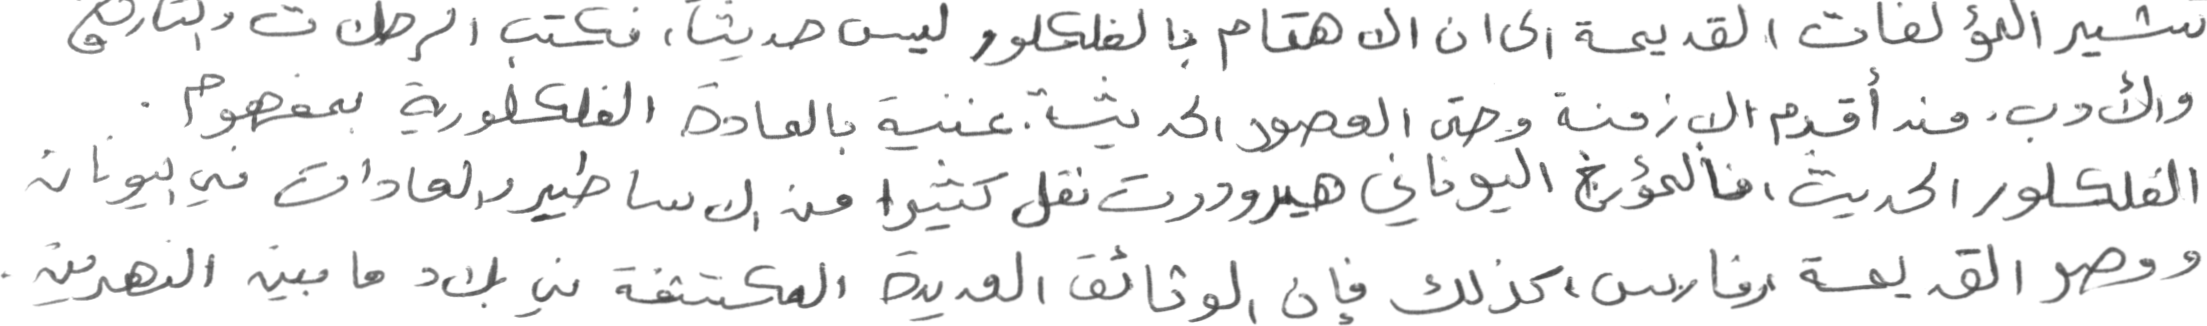 تشير المؤلفات القديمة الى ان الاهتمام بالفلكلور ليس حديثاً، فكتب الرحلات والتاريخ
والأدب. منذ أقدم الازمنة وحتى العصور الحديثة. غنية بالمادة الفلكلورية بمفهوم.
الفلكلور الحديث، فالمؤرخ اليوناني هيرودوت نقل كثيرا من الاساطير والعادات في اليونان
ومصر القديمة وفارس، كذلك فإن الوثائق العديدة المكتشفة في بلاد ما بين النهرين.